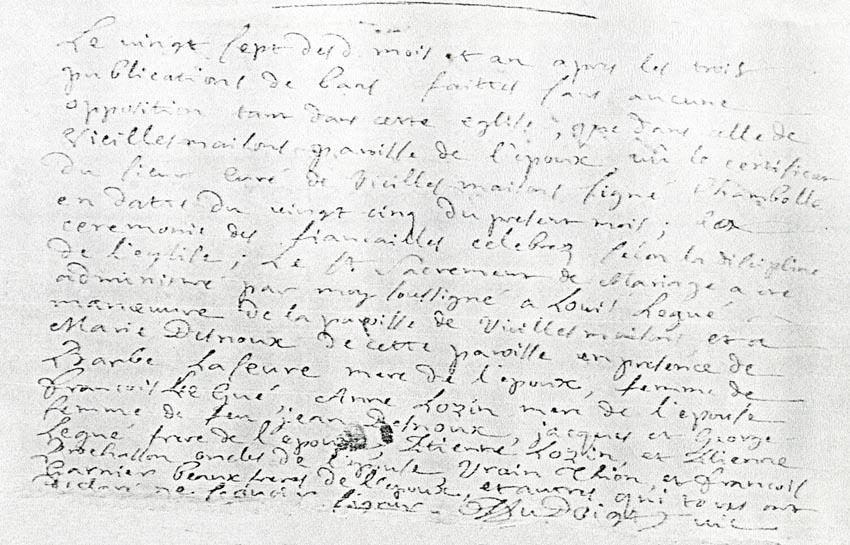 Le vingt sept desd. mois et an apres les trois
publications de bans faittes sans aucune
opposition tant dans cette eglise, que dans celle de
Vieillesmaisons paroisse de l'epoux, vû le certificat
du sieur Curé de Vieillesmaisons signé Chambolle
en datte du vingt cinq du present mois; les
ceremonies des fiancailles celebrez selon la discipline
de l'eglise; Le St Sacrement de Mariage a ete
administré par moy soussigné a Louis Legué
manoeuvre de la paroisse de Vieillesmaisons, et a
Marie Desnoux de cette paroisse en presence de
Barbe Lafeure mere de l'epoux, femme de
francois Le Gué, Anne Lozin mere de l'epouse
femme de feu jean Desnoux, jacques et George
Legué frere de l'epoux, Etienne Lozin, et Etienne
oncles de l'epouse Vrain Thion, et francois
Garnier beaux freres de l'epoux, et autres qui tous ont
declaré ne scavoir signer.